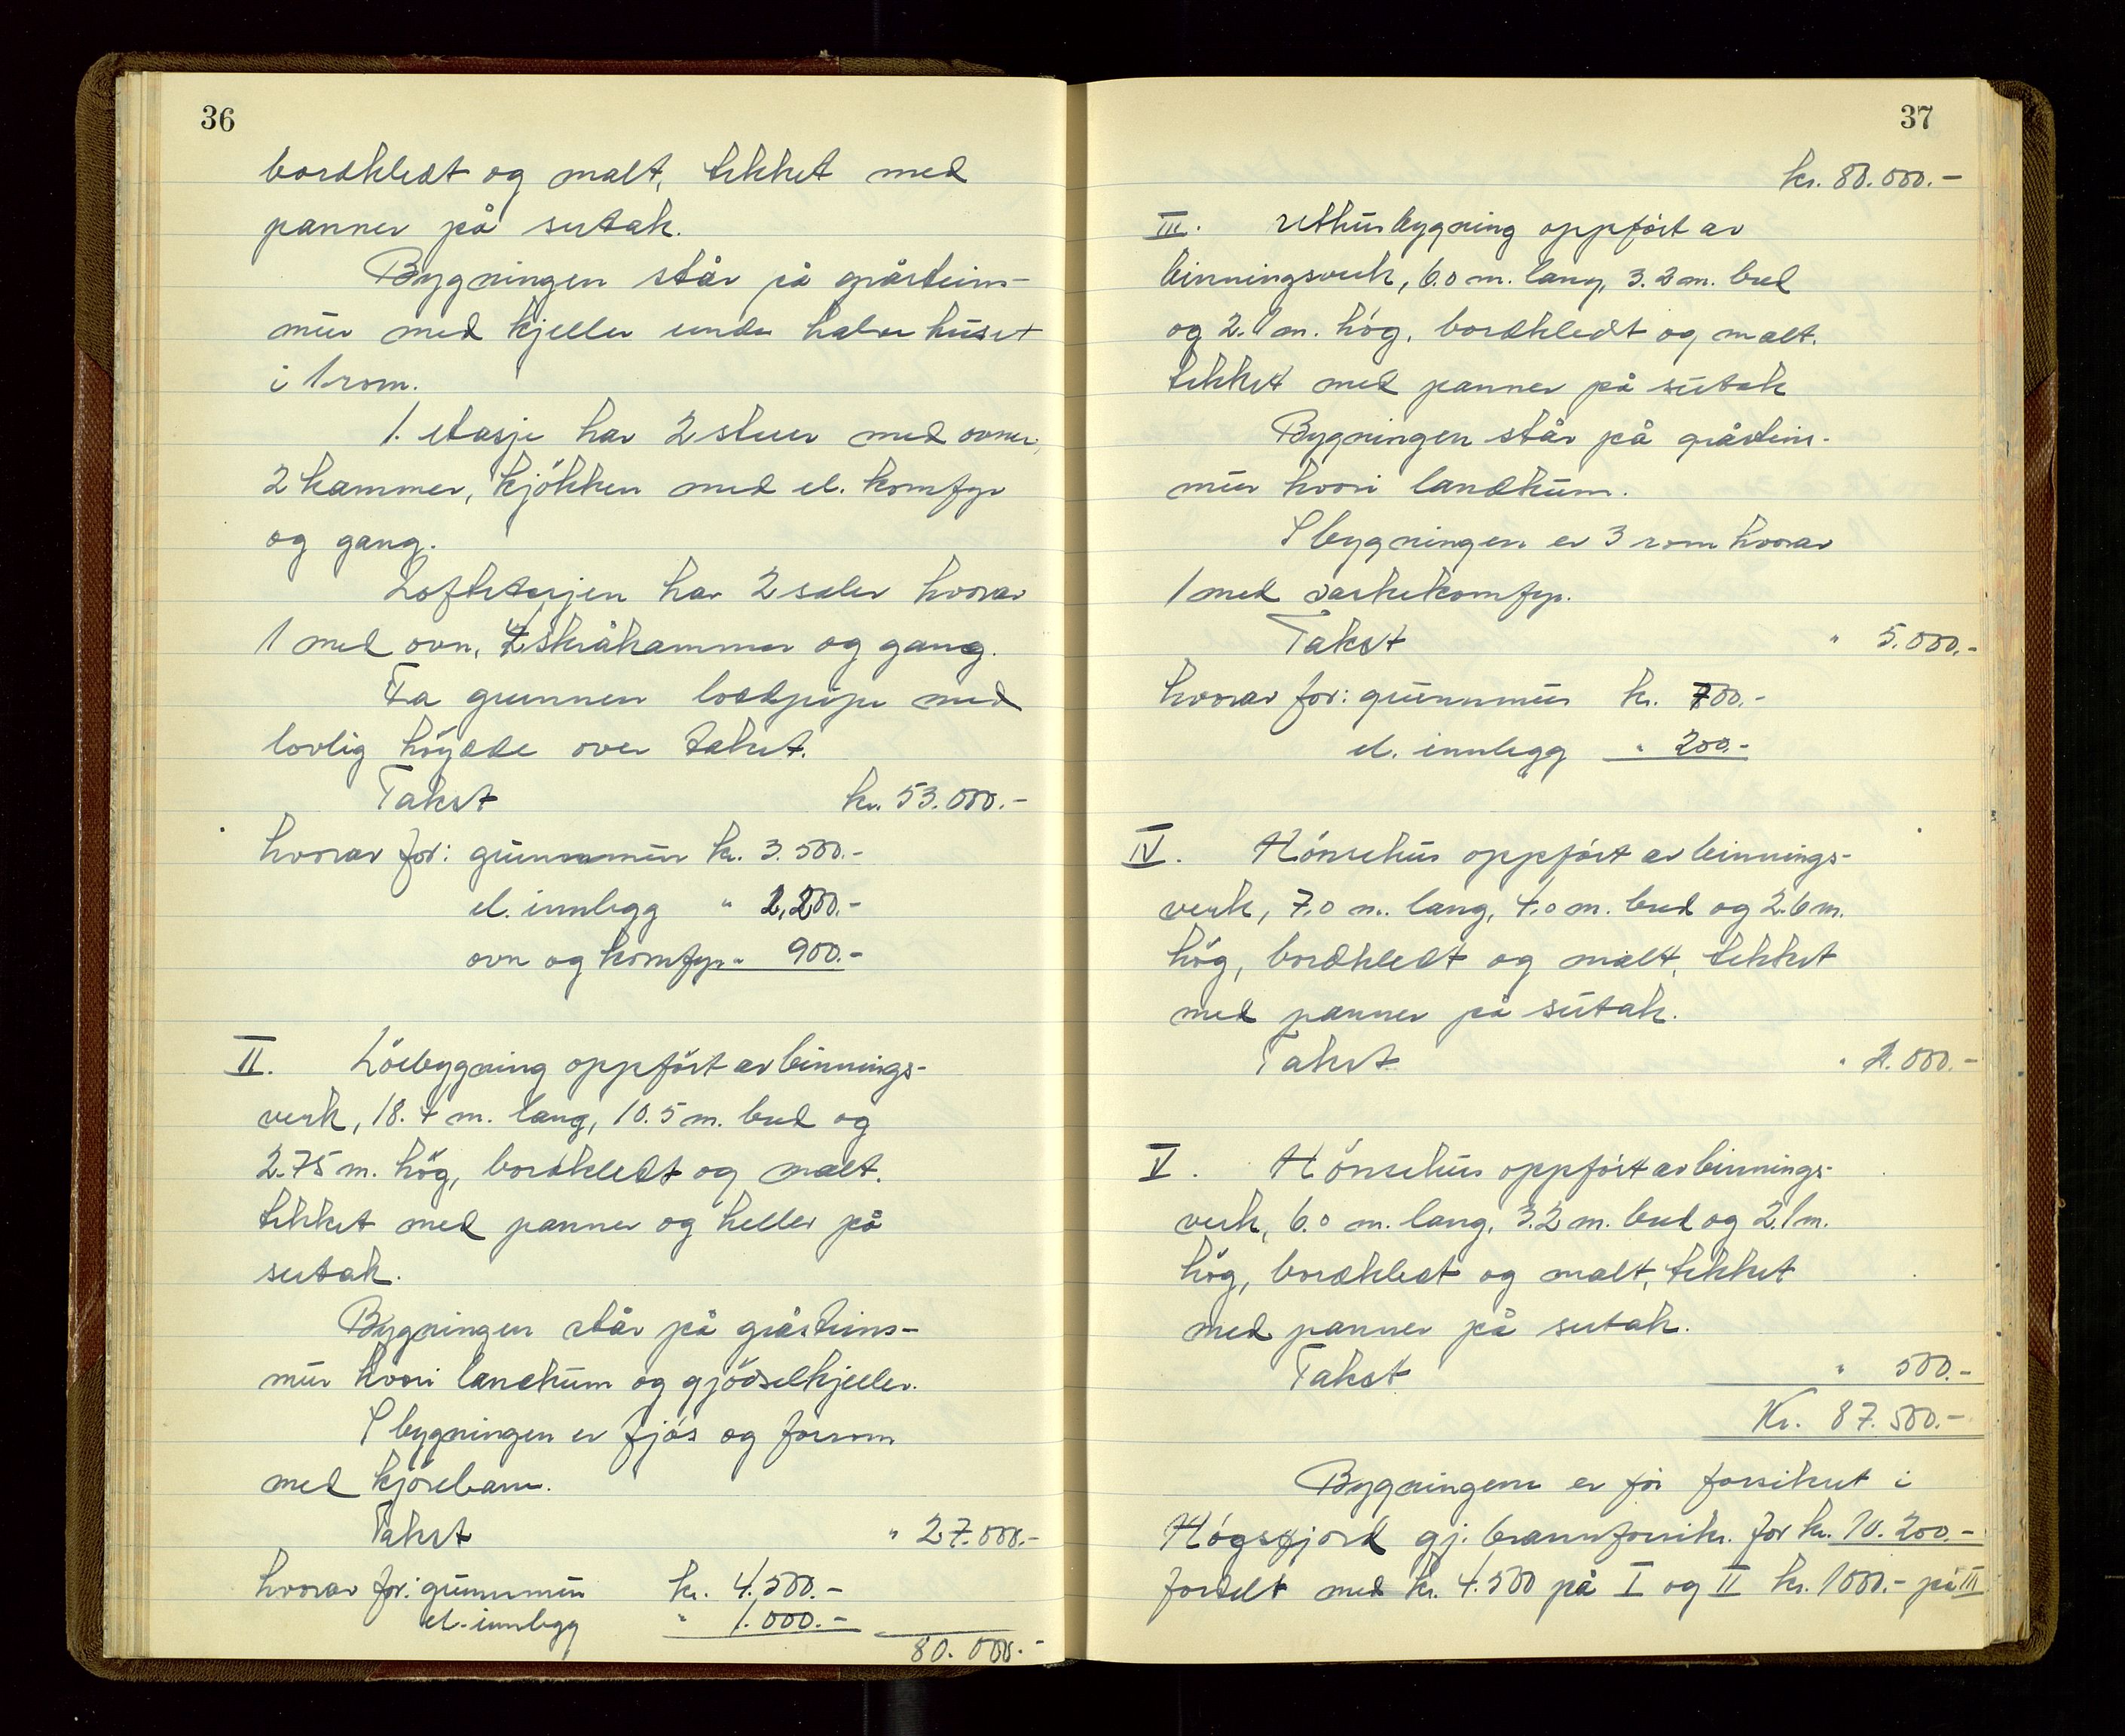 36
bordkledt og malt, tekket med
panner på sutak.
Bygningen står på gråsteins-
mur med kjeller under halve huset
i 1 rom.
1. etasje har 2 stuer med ovner,
2 kammer, kjökken med el. komfyr
og gang.
Loftetasjen har 2 saler hvorav
1 med ovn, 4 skråkammer og gang.
Fra grunnen loddpipe med
lovlig höyde over taket.
Takst kr. 53.000.-
hvorav for: grunnmur kr. 3.500.-
el. innlegg " 2,200.-
ovn og komfyr " 900.-
II. Löebygning oppfört av binnings-
verk, 18.4 m. lang, 10.5 m. bred og
2.75 m. hög, bordkledt og malt.
tekket med panner og heller på
sutak.
Bygningen står på gråsteins-
mur hvori landkum og gjödselkjeller.
I bygningen er fjös og forrom
med kjörebane.
Takst " 27.000.-
hvorav for: grunnmur kr. 4.500.-
el. innlegg " 1.000.-
80.000.-
37
kr. 80.000.-
III. Uthusbygning oppfört av
binningsverk, 6.0 m. lang, 3.2 m. bred
og 2.1 m. hög, bordkledt og malt.
tekket med panner på sutak
Bygningen står på gråsteins-
mur hvori landkum.
I bygningen er 3 rom hvorav
1 med vaskekomfyr.
Takst " 5.000.-
hvorav for: grunnmur kr. 700.-
el. innlegg " 200.-
IV. Hönsehus oppfört av binnings-
verk, 7.0 m. lang, 4.0 m. bred og 2.6 m.
hög, bordkledt og malt, tekket
med panner på sutak.
Takst " 2.000.-
V. Hönsehus oppfört av binnings-
verk, 6.0 m. lang, 3.2 m. bred og 2.1 m.
hög, bordkledt og malt, tekket
med panner på sutak.
Takst " 500.-
Kr. 87.500.-
Bygningene er för forsikret i
Högsfjord gj. brannforsikr. for kr. 10.200.-
fordelt med kr. 4.500 på I og II kr. 1000.- på III